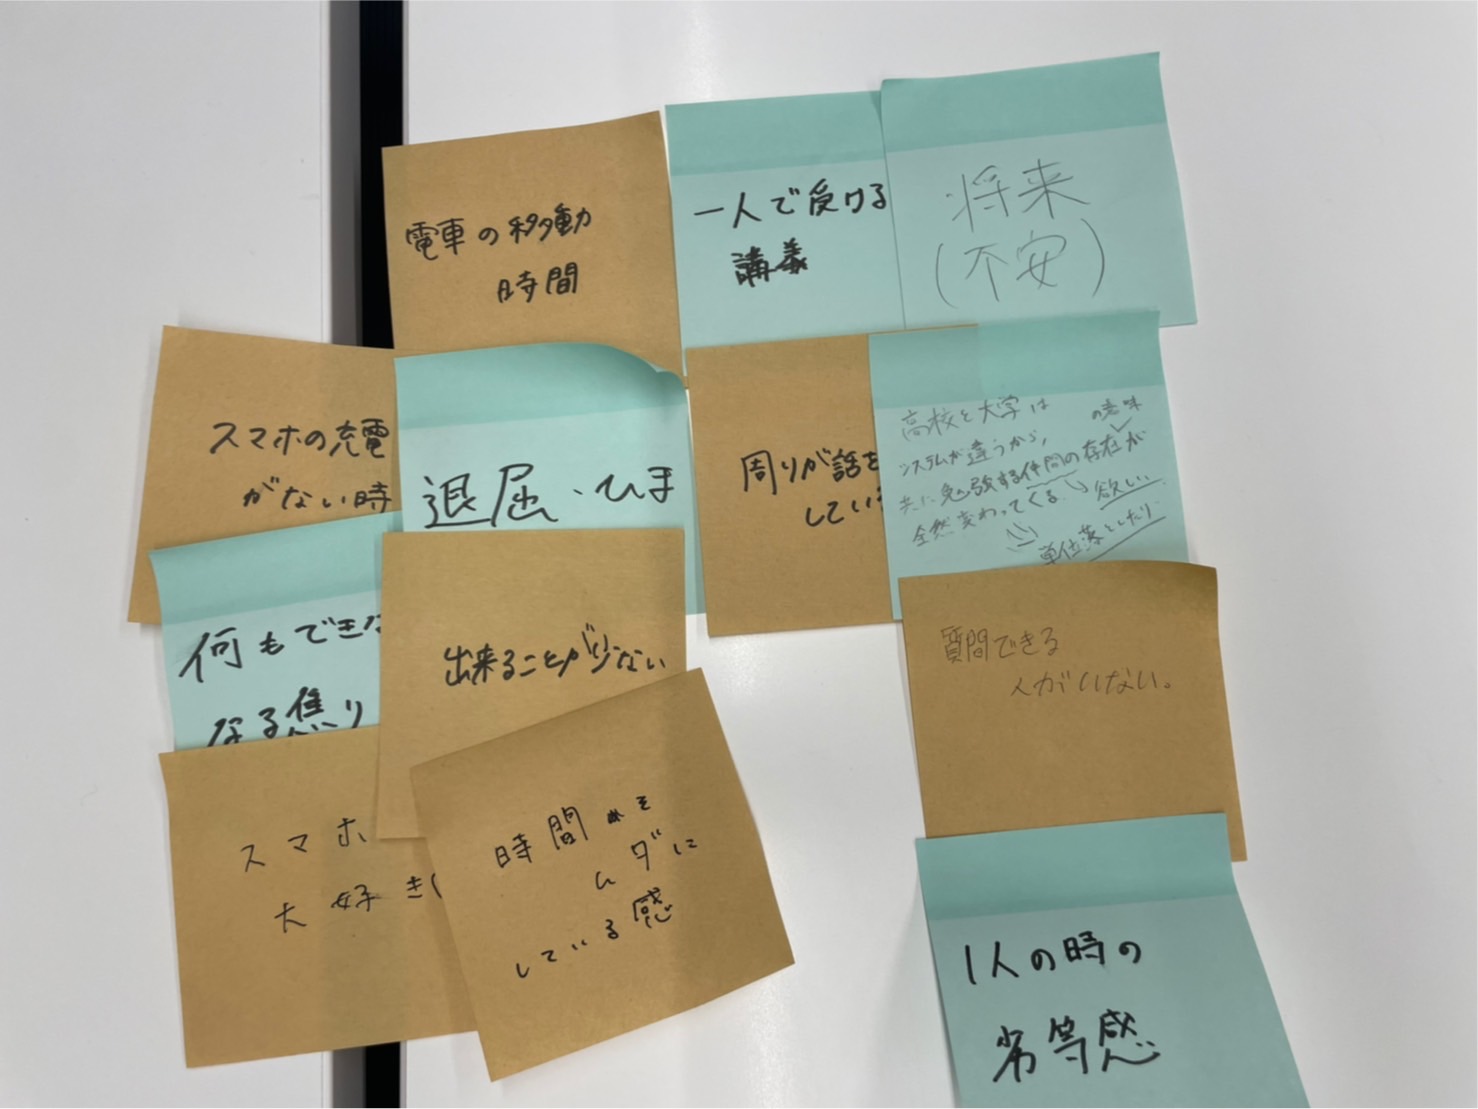 電車の移動
時間
一人で受ける
講義
将来
(不安)
スマホの充電
がない時
退屈、ひま
周りが話を
してい
高校と大学は
システムが違うから、
共に勉強する仲間の存在が
の意味
全然変わってくる。→欲しい
単位落としたり
何もできな
なる焦り
出来ることが少ない
質問できる
人がいない。
スマホ
大好き
時間をを
ムダに
している感
1人の時の
劣等感